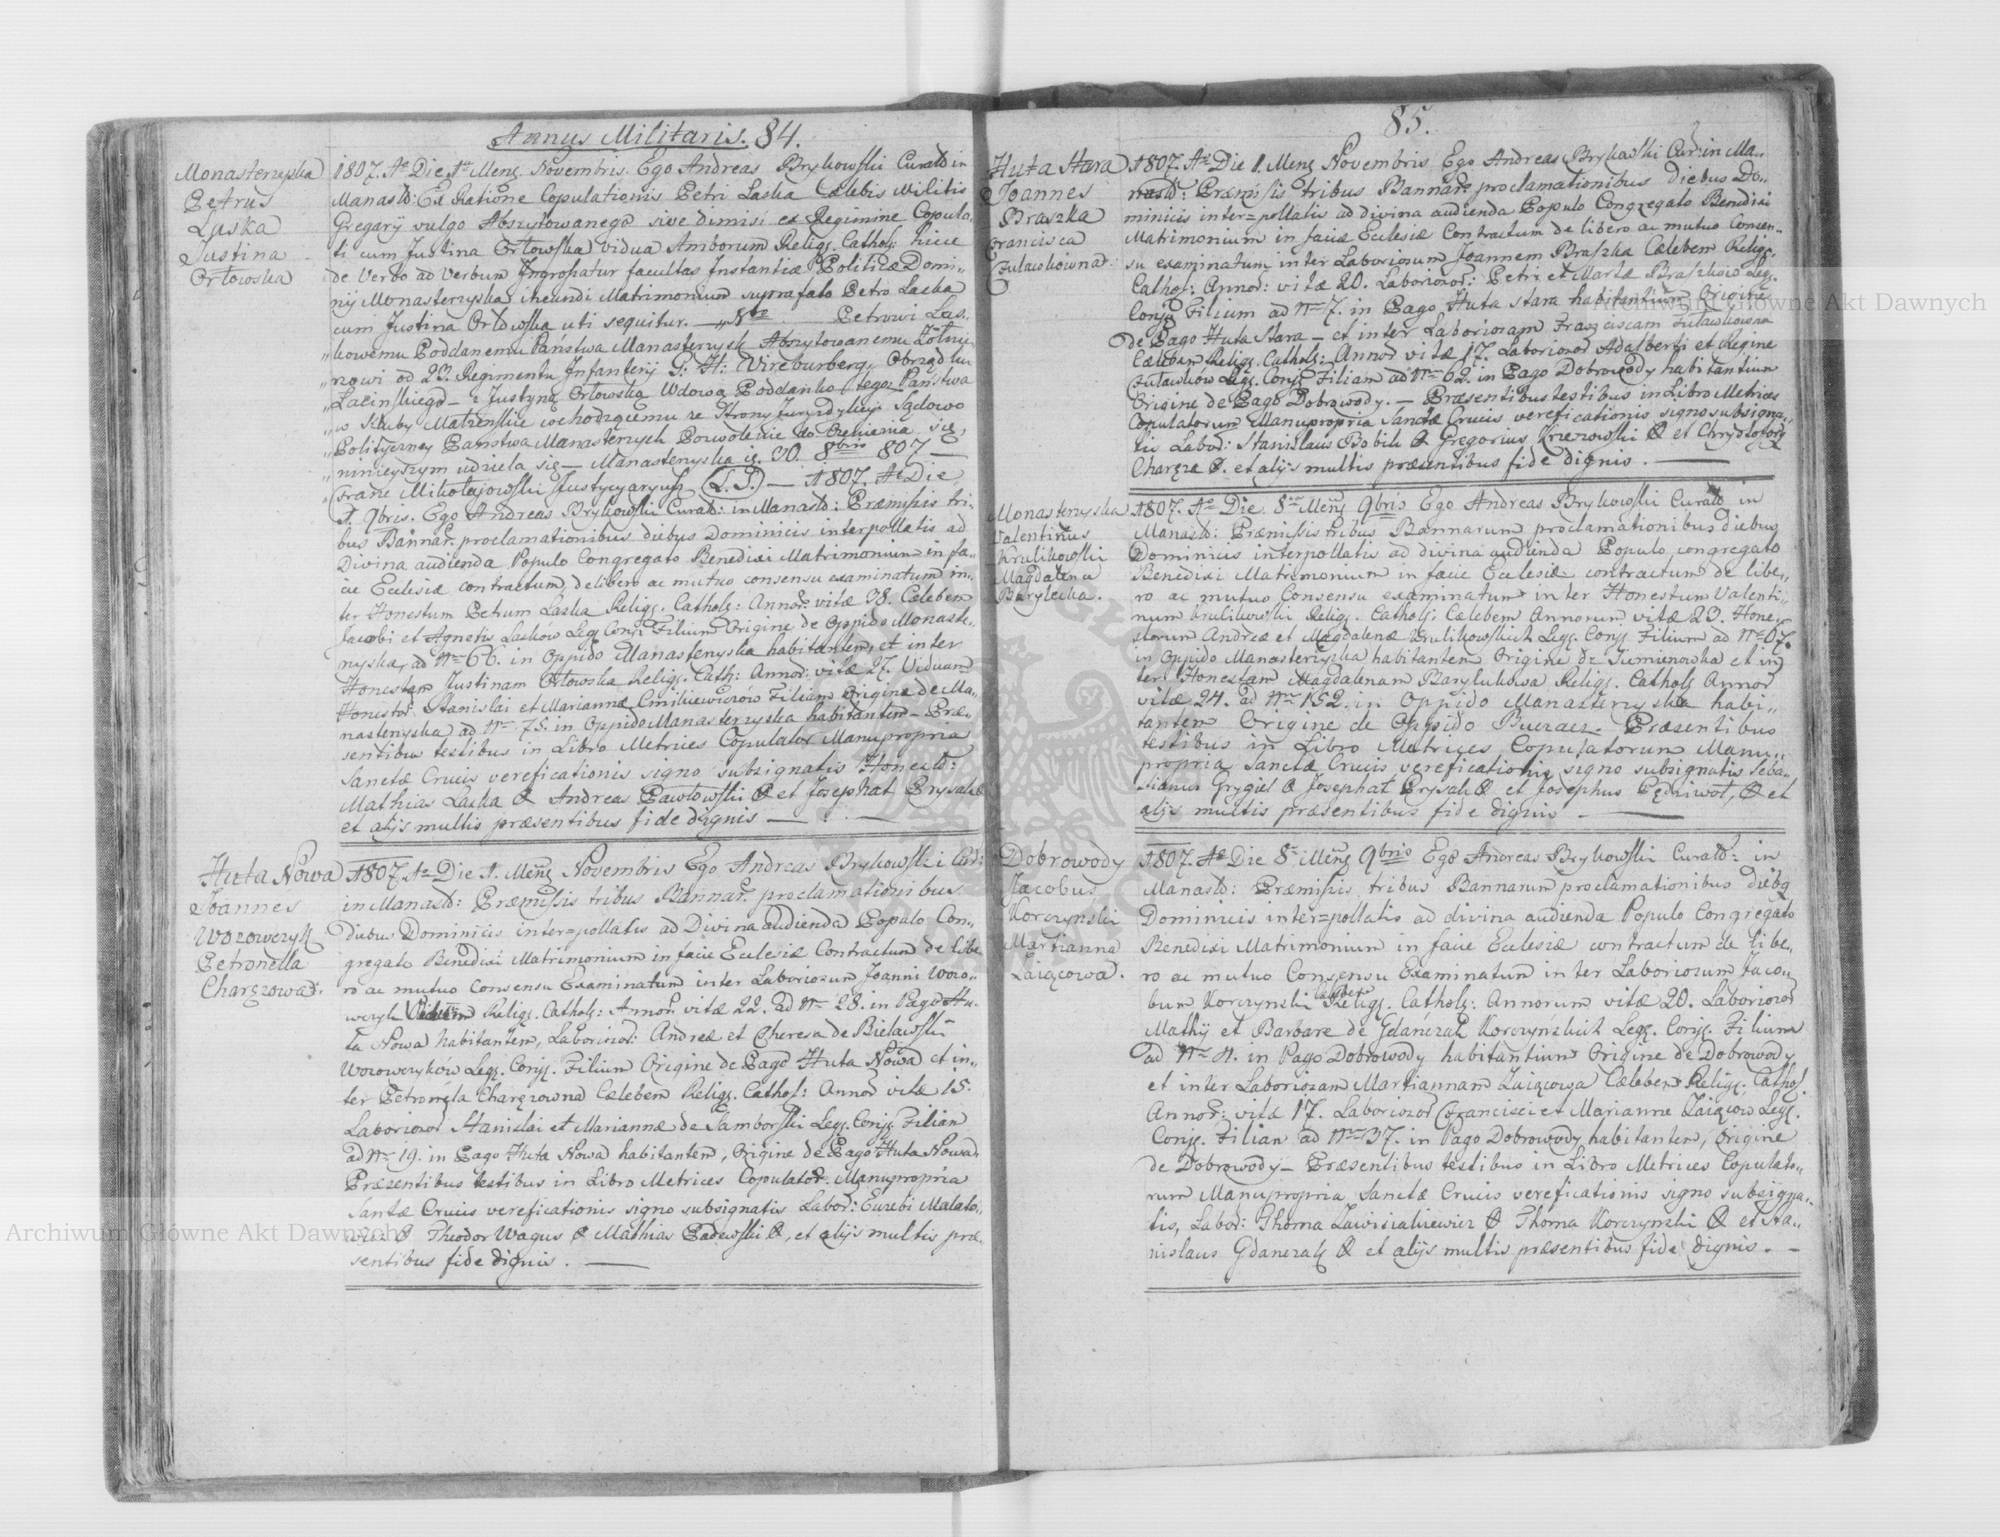 Annus Militaris. 84.
Monasterzyska
Petrus
Laska
Justina
Orłowska
1807. Ao Die 1a Mens Novembris. Ego Andreas Brykowski Curatd in
Manastd: Ex Ratione Copulationis Petri Laska Cælebis Militis
Gregarij vulgo Abszytowanego sive dimisi ex Regimine Copula,
ti cum Justina Orłowska Vidua Amborum Religs. Cathols: hicce
de Verbo ad Verbum Ingrossatur facultas Instantiæ Politicæ Domi,,
nij Monasterzyska ineundi Matrimonium suprafato Petro Laska
cum Justina Orłowska uti sequitur. — Petrowi Las,,
„kowemu Poddanemu Państwa Manasterzysk Abszytowanemu Żołnie,,
„rzowi od 23. Regimentu Infanterij G: H: Wirzburberg, Obrządku
„Łacińskiego — z Justyną Orłowską Wdową Poddanką tegoż Państwa
„w Śluby Małżeńskie wchodzącemu ze Strony Juryzdykcyi Sądowo
„Polityczney Państwa Manasterzysk Pozwolenie do Żenienia się,
„ninieyszym udziela się — Manasterzyska d. 30. 8bris 807 —
„Franc Mikołajowski Justycyaryusz (L.S.) — 1807. Ao Die
1. 9bris. Ego Andreas Brykowski Curatd: in Manastd: Præmissis tri,
bus Bannar. proclamationibus diebus Dominicis interpollatis ad
Divina audienda Populo Congregato Benedixi Matrimonium in fa,,
cie Ecclesiæ contractum, de libero ac mutuo consensu examinatum in,,
ter Honestum Petrum Laska Religs. Cathols: Annor. vitæ 38. Cælebem
Jacobi et Agnetis Lasków Legs Conjs Filium Origine de Oppido Monaste,,
rzyska, ad Nm 66. in Oppido Manasterzyska habitantem, et inter
Honestam Justinam Orłowska Religs. Cath: Annor: vitæ 27. Viduam
Honestor Stanislai et Mariannæ Filiam Origine de Ma,,
nasterzyska ad Nm 75. in Oppido Manasterzyska habitantem — Præ,,
sentibus testibus in Libro Metrices Copulator Manupropria
Sanctæ Crucis vereficationis signo subsignatis Honestd:
Mathias Laska & Andreas Pawłowski & et Josephat Prysak &
et alijs multis præsentibus fide dignis —
Huta Nowa
Joannes
Wozowczyk
Petronella
Charęzowa.
1807. Ao Die 1. Mens Novembris Ego Andreas Brykowski Curd:
in Manastd: Præmissis tribus Bannar. proclamationibus
diebus Dominicis inter=pollatis ad Divina audienda Populo Con,,
gregato Benedixi Matrimonium in facie Ecclesiæ Contractum de libe,
ro ac mutuo Consensu Examinatum inter Laboriosum Joanni Wozo,,
wczyk Viduum Religs. Cathols: Annor. vitæ 22. ad Nm 28. in Pago Hu,,
ta Nowa habitantem, Laborioror: Andreæ et Theresa de Bielawski
Wozowczyków Legs. Conjs. Filium Origine de Pago Huta Nowa et in,,
ter Petronela Charęzowna Cælebem Religs. Cathols: Annor vitæ 15.
Laborioror Stanislai et Mariannæ de Samborski Legs. Conjs Filian
ad Nm 19. in Pago Huta Nowa habitantem, Origine de Pago Huta Nowa.
Præsentibus testibus in Libro Metrices Copulator. Manupropria
Santæ Crucis vereficationis signo subsignatis Labor: Euzebi Malato,,
wicz & Theodor Wagus & Mathias Padewski &, et alijs multis præ,
sentibus fide dignis. —
85.
Huta Stara
Joannes
Braszka
Francisca
Żuławkowna.
1807. Ao Die 1. Mens Novembris Ego Andreas Brykowski Cur: in Ma,,
nastd: Præmissis tribus Bannar. proclamationibus diebus Do,,
minicis inter=pollatis ad divina audienda Populo Congregato Benedixi
Matrimonium in facie Ecclesiæ Contractum de libero ac mutuo Consen,,
su examinatum inter Laboriosum Joannem Braszka Cælebem Religs.
Cathols: Annor: vitæ 20. Laborioror: Petri et Martæ Braszków Legs.
Conjs Filium ad Nm 7. in Pago Huta Stara habitantium Origine
de Pago Huta Stara — et inter Laboriosam Franciscam Żuławkowna
Cælebem Religs. Cathols: Annor vitæ 17. Laborioror Adalberti et Regine
Żuławków Legs. Conjs Filiam ad Nm 62. in Pago Dobrowody habitantium
Origine de Pago Dobrowody. — Præsentibus testibus in Libro Metrices
Copulatorum Manupropria Sanctæ Crucis vereficationis signo subsigna,,
tis Labor: Stanislaus Bobik & Gregorius Krezowski & et Chrystofory
Charęza &. et alijs multis præsentibus fide dignis. —
Monasterzyska
Valentinus
Krulikowski
Magdalena
Barylecka.
1807. Ao Die 8va Mens 9bris Ego Andreas Brykowski Curatd in
Manastd: Præmissis tribus Bannarum proclamationibus diebus
Dominicis interpollatis ad divina audienda Populo congregato
Benedixi Matrimonium in facie Ecclesiæ contractum de libe,,
ro ac mutuo Consensu examinatum inter Honestum Valenti,,
num Krulikowski Religs. Cathols: Cælebem Annorum vitæ 23. Hone,,
storum Andreæ et Magdalenæ Krulikowskich Legs. Conjs. Filium ad Nm 67.
in Oppido Manasterzyska habitantem Origine de Siemienowska et in
ter Honestam Magdalenam Barylukowa Religs. Cathols Annor
vitæ 24. ad Nm 152. in Oppido Manasterzyska habi,,
tantem Origine de Oppido Buczacz. Præsentibus
testibus in Libro Metrices Copulatorum Manu,,
propria Sanctæ Crucis vereficationis signo subsignatis Seba,,
stianus Grygiel & Josephat Prysak & et Josephus Pędziwoł, & et
alijs multis præsentibus fide dignis. —
Dobrowody
Jacobus
Korczynski
Martianna
Zaiącowa.
1807. Ao Die 8a Mens 9bris Ego Andreas Brykowski Curatd: in
Manastd: Præmissis, tribus Bannarum proclamationibus diebq
Dominicis inter=pollatis ad divina audienda Populo Congregato
Benedixi Matrimonium in facie Ecclesiæ contractum de libe,,
ro ac mutuo Consensu Examinatum inter Laboriosum Jaco,,
bum Korczynski Cælebem Religs. Cathols: Annorum vitæ 20. Laborioror
Mathij et Barbare de Gdańczak Korczynskich Legs. Conjs. Filium
ad Nm 4. in Pago Dobrowody habitantium Origine de Dobrowody
et inter Laboriosam Martiannam Zaiącowa Cælebem Religs. Cathol.
Annor: vitæ 17. Laborioror Francisci et Marianne Zaiąców Legs.
Conjs. Filian ad Nm 37. in Pago Dobrowody habitantem, Origine
de Dobrowody — Præsentibus testibus in Libro Metrices Copulato,,
rum Manupropria Sanctæ Crucis vereficationis signo subsigna,,
tis, Labor: Thoma Zawisiakiewicz & Thoma Korczynski & et Sta,,
nislaus Gdanczak & et alijs multis præsentibus fide dignis. —
Archiwum Główne Akt Dawnych
Archiwum Główne Akt Dawnych